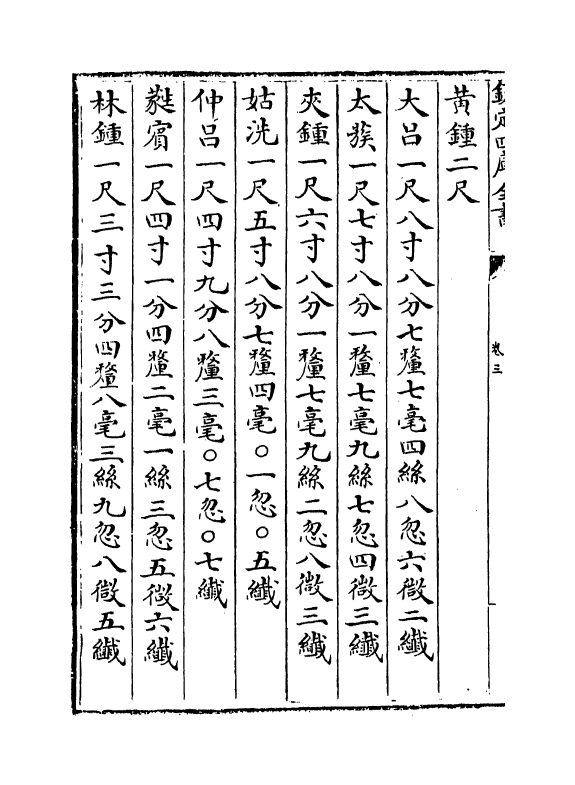 欽定四庫全書
卷三
黃鍾二尺
大呂一尺八寸八分七釐七毫四絲八忽六微二纖
太蔟一尺七寸八分一釐七毫九絲七忽四微三纖
夾鍾一尺六寸八分一釐七毫九絲二忽八微三纖
姑洗一尺五寸八分七釐四毫○一忽○五纖
仲呂一尺四寸九分八釐三毫○七忽○七纖
蕤賓一尺四寸一分四釐二毫一絲三忽五微六纖
林鍾一尺三寸三分四釐八毫三絲九忽八微五纖